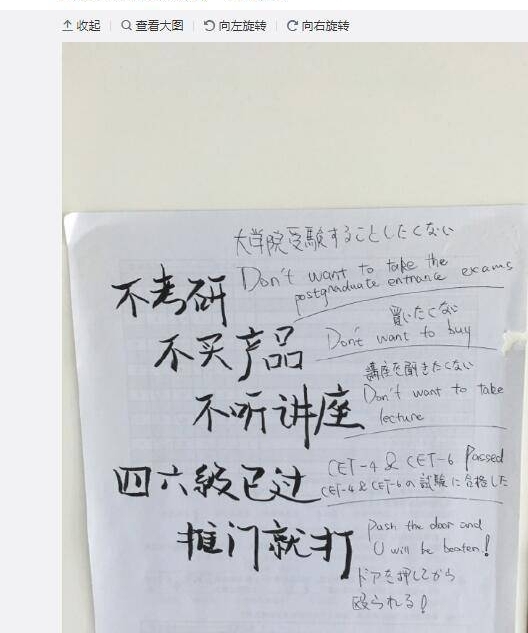 收起 查看大图 向左旋转 向右旋转
大学院受験することしたくない
不考研 Don't want to take the
postgraduate entrance exams
買いたくない
不买产品 Don't want to buy
講座を聞きたくない
不听讲座 Don't want to take
lecture
四六级已过 CET-4 & CET-6 Passed
CET-4 & CET-6の試験に合格した
推门就打 Push the door and
U will be beaten!
ドアを押してから
殴られる!